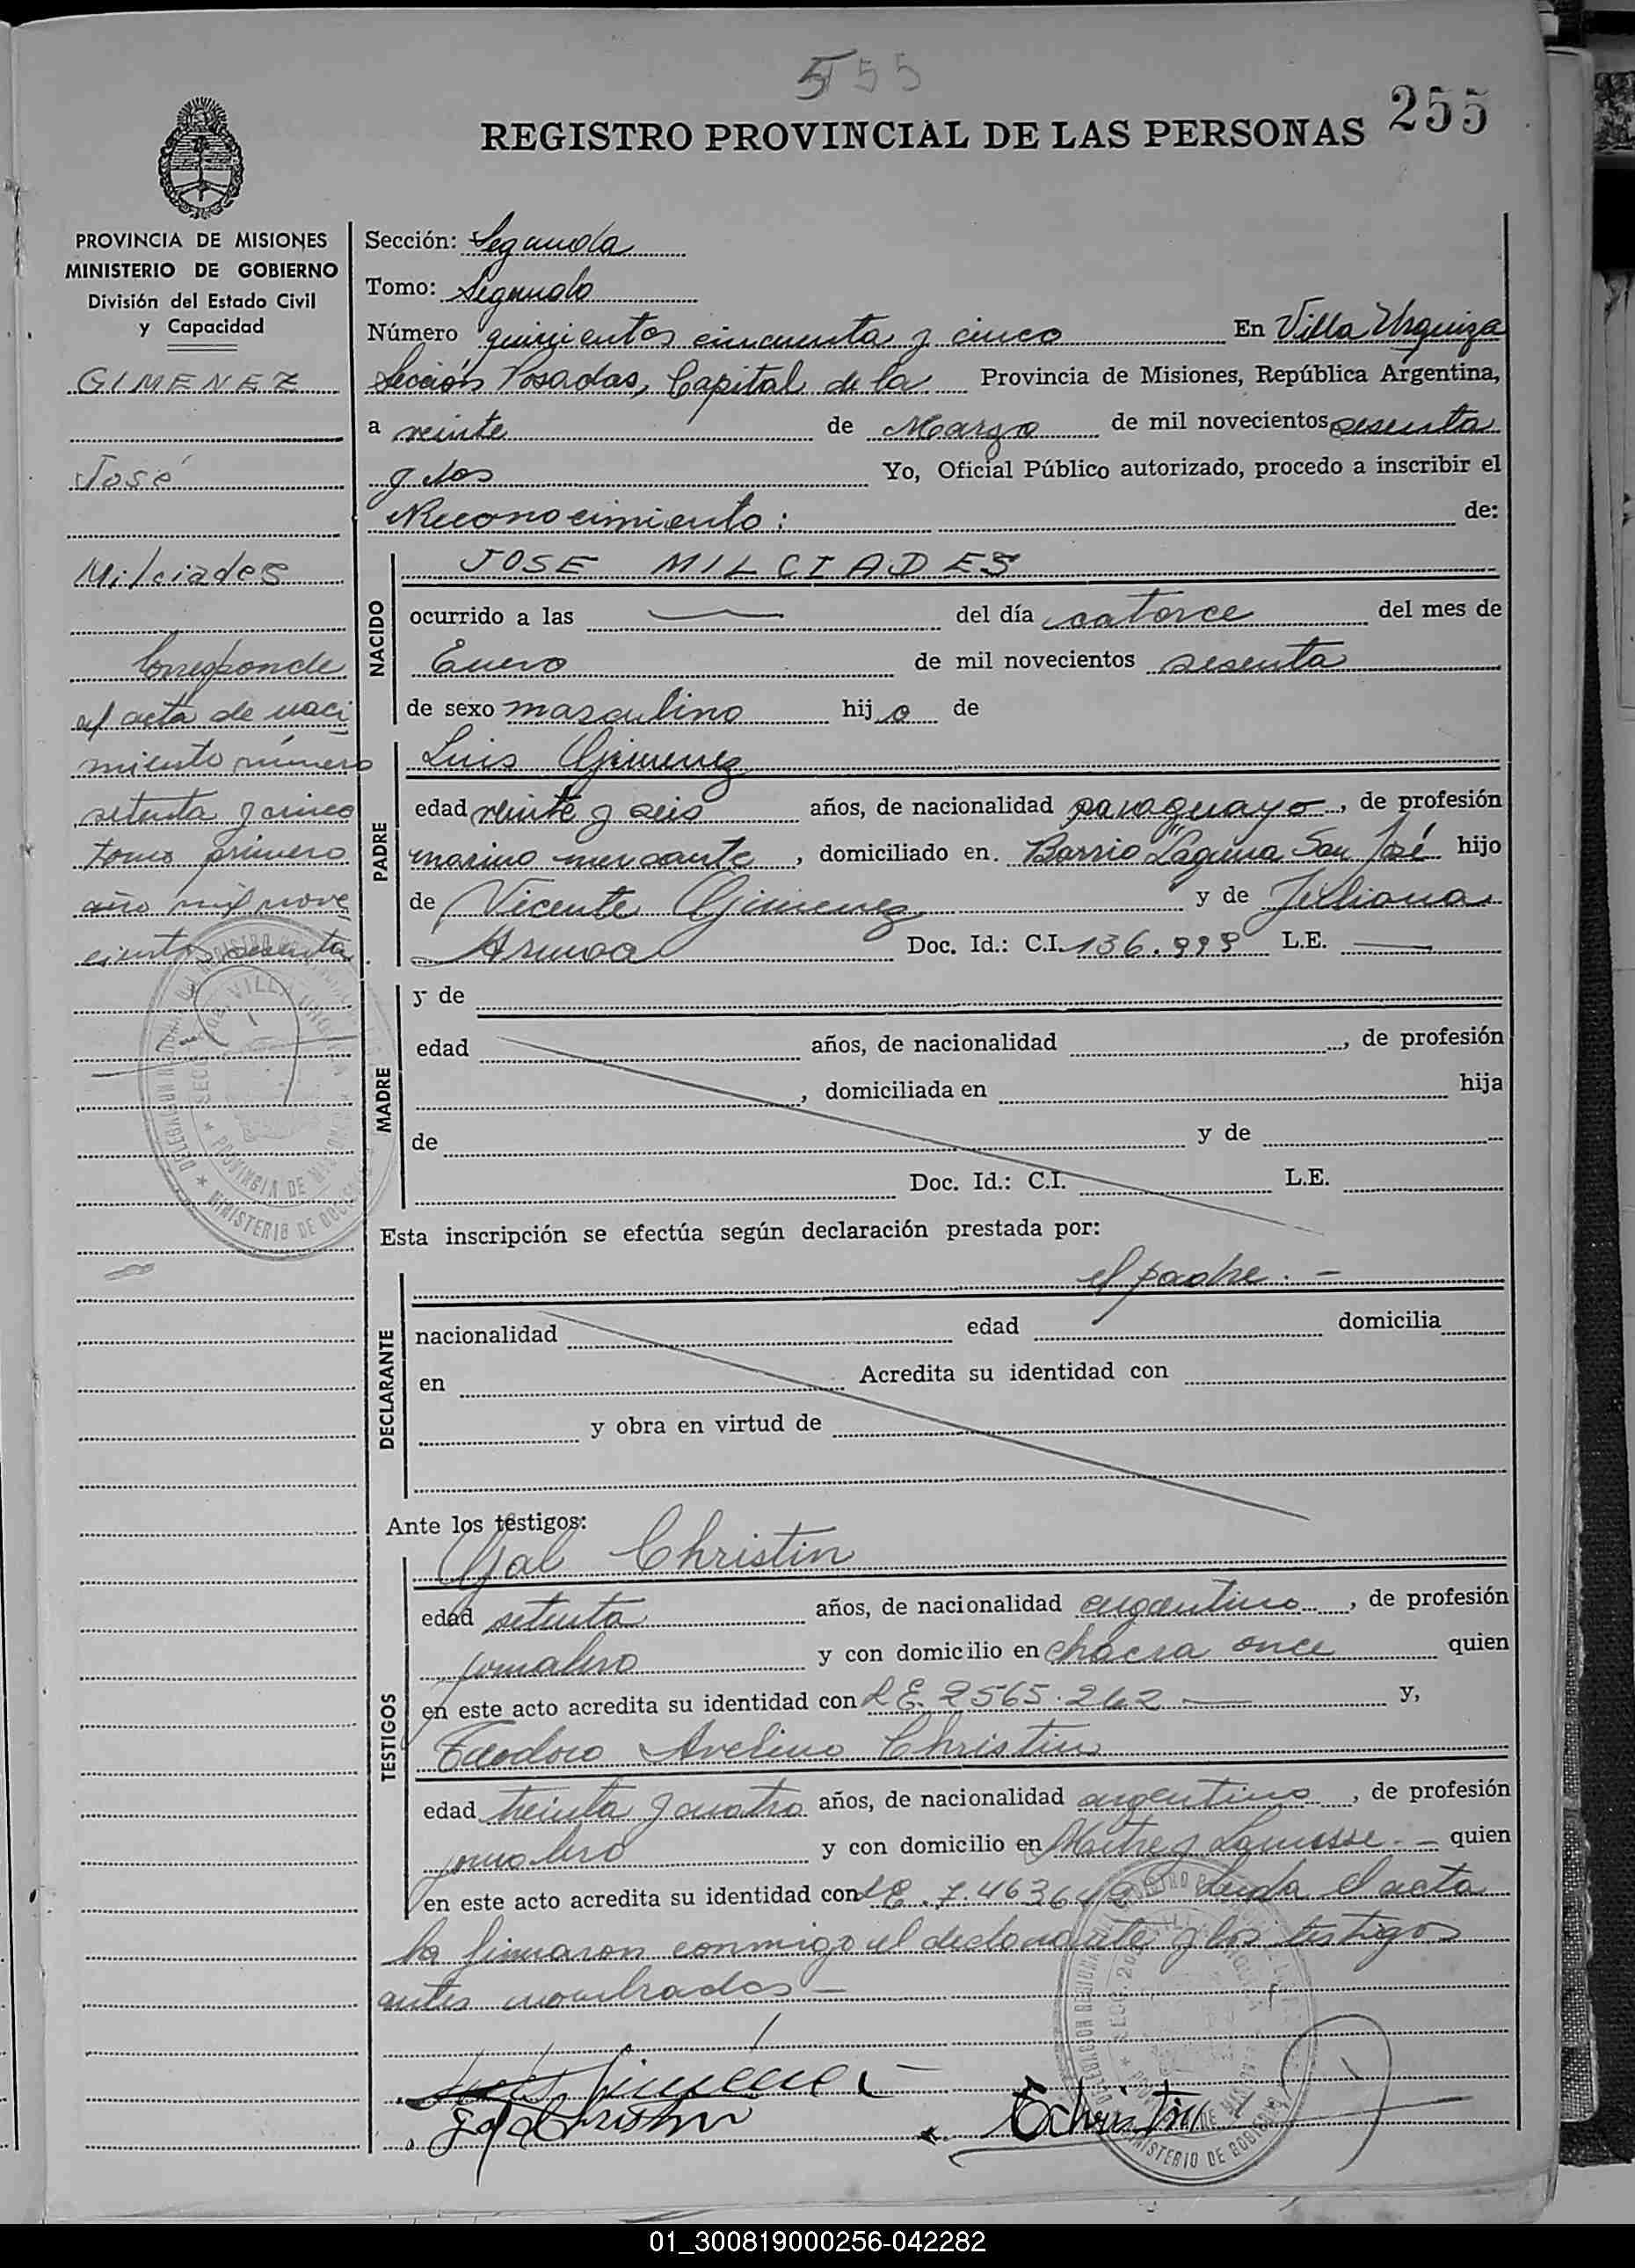 555
255
REGISTRO PROVINCIAL DE LAS PERSONAS
PROVINCIA DE MISIONES
MINISTERIO DE GOBIERNO
División del Estado Civil
y Capacidad
GIMENEZ
José
Milciades
Corresponde
al acta de naci
miento número
setenta y cinco
tomo primero
año mil nove
cientos sesenta
Sección: Segunda
Tomo: Segundo
Número quinientos cincuenta y cinco En Villa Urquiza
Sección Posadas, Capital de la Provincia de Misiones, República Argentina,
a veinte de Marzo de mil novecientos sesenta
y dos Yo, Oficial Público autorizado, procedo a inscribir el
Reconocimiento: de:
NACIDO
JOSE MILCIADES
ocurrido a las — del día catorce del mes de
Enero de mil novecientos sesenta
de sexo masculino hijo de
PADRE
Luis Gimenez
edad veinte y seis años, de nacionalidad paraguayo, de profesión
marino mercante, domiciliado en. Barrio Laguna San José hijo
de Vicente Gimenez y de Juliana
Armoa Doc. Id.: C.I. 136.999 L.E. —
MADRE
y de
edad años, de nacionalidad , de profesión
, domiciliada en hija
de y de
Doc. Id.: C.I. L.E.
Esta inscripción se efectúa según declaración prestada por:
el padre. -
DECLARANTE
nacionalidad edad domicilia
en Acredita su identidad con
y obra en virtud de
Ante los testigos:
TESTIGOS
Gal Christin
edad setenta años, de nacionalidad argentino, de profesión
jornalero y con domicilio en chacra once quien
en este acto acredita su identidad con L E. 2565.262 — y,
Teodoro Avelino Christin
edad treinta y cuatro años, de nacionalidad argentino, de profesión
jornalero y con domicilio en Mitre y Lanusse. - quien
en este acto acredita su identidad con L E. 7.463 Leida el acta
la firmaron conmigo el declarante y los testigos
antes nombrados —
Gimenez
Gal Christin
E Christin
01_300819000256-042282